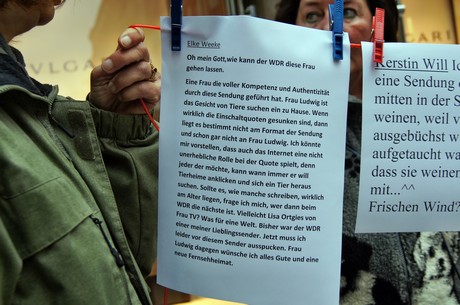 BVLGARI
VLGARI
Elke Weeke
Oh mein Gott,wie kann der WDR diese Frau
gehen lassen.
Eine Frau die voller Kompetenz und Authentizität
durch diese Sendung geführt hat. Frau Ludwig ist
das Gesicht von Tiere suchen ein zu Hause. Wenn
wirklich die Einschaltquoten gesunken sind, dann
liegt es bestimmt nicht am Format der Sendung
und schon gar nicht an Frau Ludwig. Ich könnte
mir vorstellen, dass auch das Internet eine nicht
unerhebliche Rolle bei der Quote spielt, denn
jeder der möchte, kann wann immer er will
Tierheime anklicken und sich ein Tier heraus
suchen. Sollte es, wie manche schreiben, wirklich
am Alter liegen, frage ich mich, wer dann beim
WDR die nächste ist. Vielleicht Lisa Ortgies von
Frau TV? Was für eine Welt. Bisher war der WDR
einer meiner Lieblingssender. Jetzt muss ich
leider vor diesem Sender ausspucken. Frau
Ludwig dagegen wünsche ich alles Gute und eine
neue Fernsehheimat.
Kerstin Will Ich
eine Sendung
mitten in der S
weinen, weil v
ausgebüchst w
aufgetaucht wa
dass sie weinen
mit...^^
Frischen Wind?